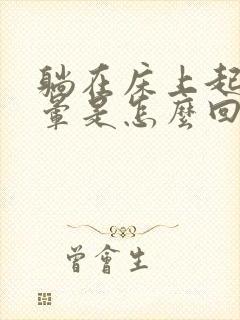 躺在床上起
暈是怎麼回
曾會生